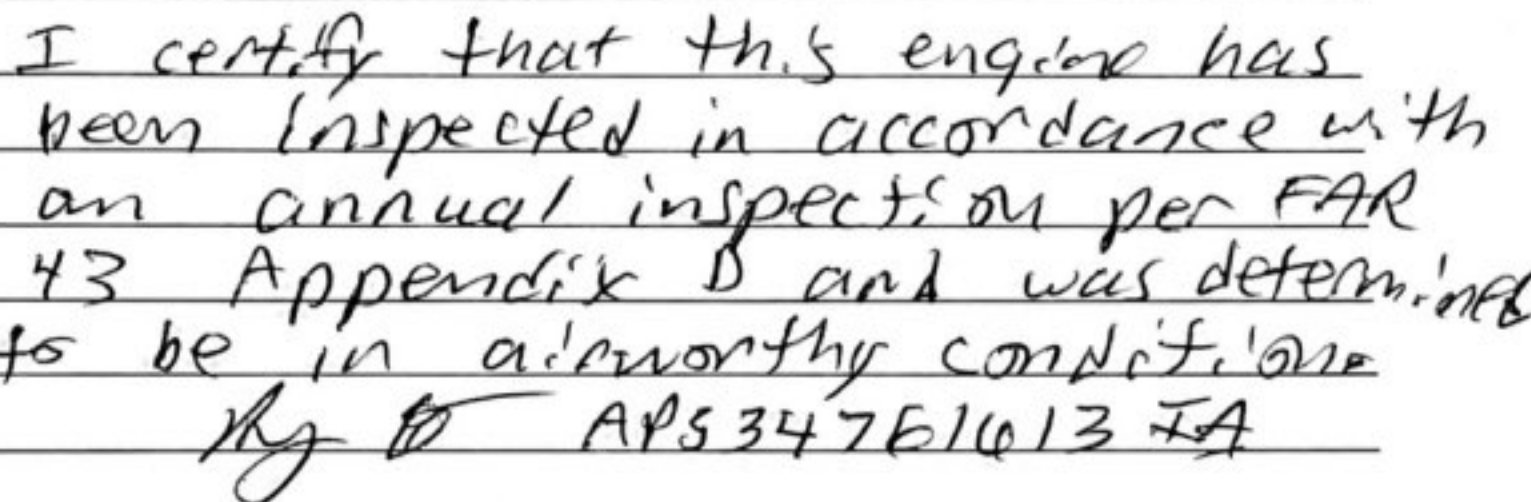 I certify that this engine has
been inspected in accordance with
an annual inspection per FAR
43 Appendix D and was determined
to be in airworthy condition.
IA